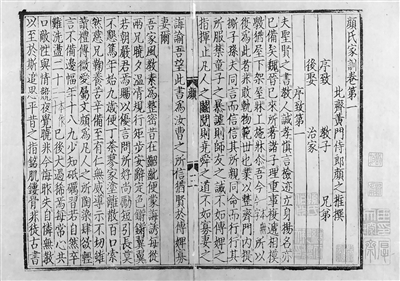 顏氏家訓卷第一
北齊黃門侍郎顏之推撰
序致 教子 兄弟
後娶 治家
序致第一
夫聖賢之書教人誠孝慎言檢迹立身揚名亦
已備矣魏晉已來所著諸子理重事複遞相摸
斆猶屋下架屋牀上施牀爾吾今所以
復為此者非敢軌物範世也業以整齊門内提
撕子孫夫同言而信信其所親同命而行行其
所服禁童子之暴謔則師友之誡不如傅婢之
指揮止凡人之鬬鬩則堯舜之道不如寡妻之
誨諭吾望此書為汝曹之所信猶賢於傅婢寡
妻爾
吾家風教素為整密昔在齠齔便蒙誨誘每從
兩兄曉夕溫凊規行矩步安辭定色鏘鏘翼翼
若朝嚴君焉賜以優言問所好尚勵短引長莫
不懇篤年始九歲便丁荼蓼家塗離散百口索
然慈兄鞠養苦辛備至有仁無威導示不切雖
讀禮傳微愛屬文頗為凡人之所陶染肆欲輕
言不備邊幅年十八九少知砥礪習若自然卒
難洗盪已後大過稀焉每常心共
口敵性與情競夜覺曉非今悔昨失自憐無教
以至於斯追思平昔之指銘肌鏤骨非徒古書